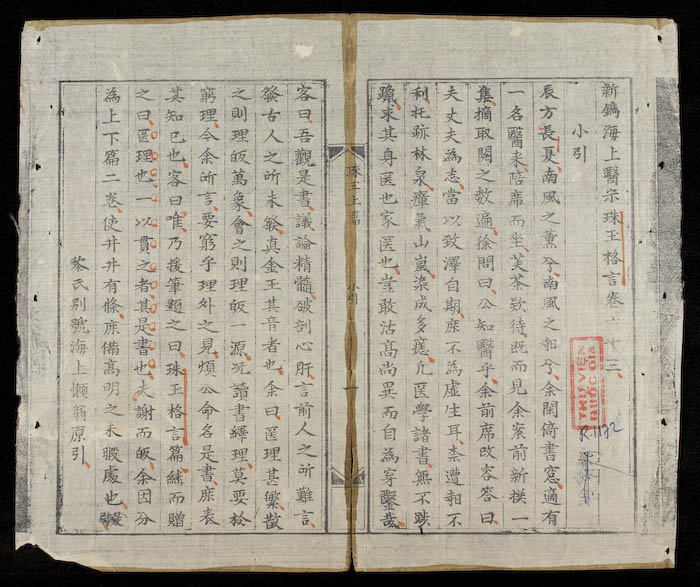 新鐫海上醫宗珠玉格言卷之十三
小引
辰方長夏南風之薰兮南風之和兮余閑倚書窓適有
一名醫來陪席而坐芙茶欵待既而見余案前新撰一
集摘取閱之数遍徐問曰公知醫乎余前席改容答曰
夫丈夫為志當以致澤自期庶不為虛生耳柰遭和不
利托跡林泉瘴氣山嵐滚成多瘧凢医學諸書無不跋
躐求其身医也家医也豈敢沽高尚異而自為穿鑿哉
客曰吾觀是書議論精髓破剖心肝言前人之所難言
發古人之所未發真金玉其音者也余曰医理甚繁散
之則理皈萬象會之則理皈一源况讀書繹理莫要於
窮理今余所言要窮乎理外之見煩公命名是書庶表
其知已也客曰唯乃援筆題之曰珠玉格言篇緒而贈
之曰医理也一以貫之者其是書也夫謝而皈余因分
為上下篇二卷使井井有條庶備高明之未暇處也
黎氏別號海上懶翁原引
珠玉上篇
小引
一
THƯ VIỆN
QUỐC GIA
R.1192